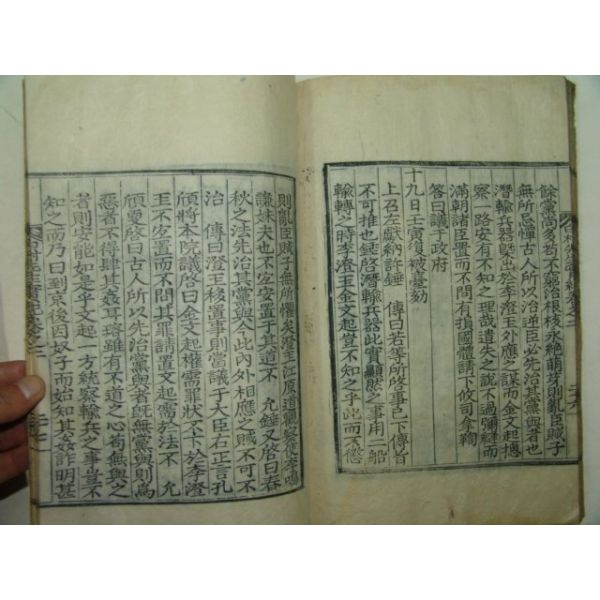 餘黨與多苟不窮治根核永絶萌芽則亂臣賊子
無所忌憚古人所以治逆臣必先治其黨與者也
潛輸兵器槩出於李澄玉外應之謀而金文起摠
察一路安有不知之理哉遺失之說不過彌縫而
滿朝諸臣置而不問有損國體請下攸司拿鞫
答曰議于政府
十九日壬寅復被臺劾
上召左獻納許錘 傳曰若等所啓事已下傳旨
不可推也錘啓潛輸兵器此實顯然之事用二船
輸轉之時李澄玉金文起豈不知之乎此而不懲
則亂臣賊子無所懼矣澄玉江原道觀察使李鳴
讓妹夫也不宜安置于其道不 允錘又啓曰春
秋之法先治其黨與今此內外相應之賊不可不
治 傳曰澄玉移置事則當議于大臣右正言孔
頎將本院議啓曰金文起權需罪狀不下於李澄
玉不宜置而不問其罪請置文起需於法不 允
頎更啓曰古人所以先治黨與者旣無黨與則爲
惡者不得肆其姦耳瑢雖有不道之心苟無與之
者則安能如是乎文起一方統察輸兵之事豈不
知之而乃曰到京後因奴子而始知其姦詐明甚
二十七